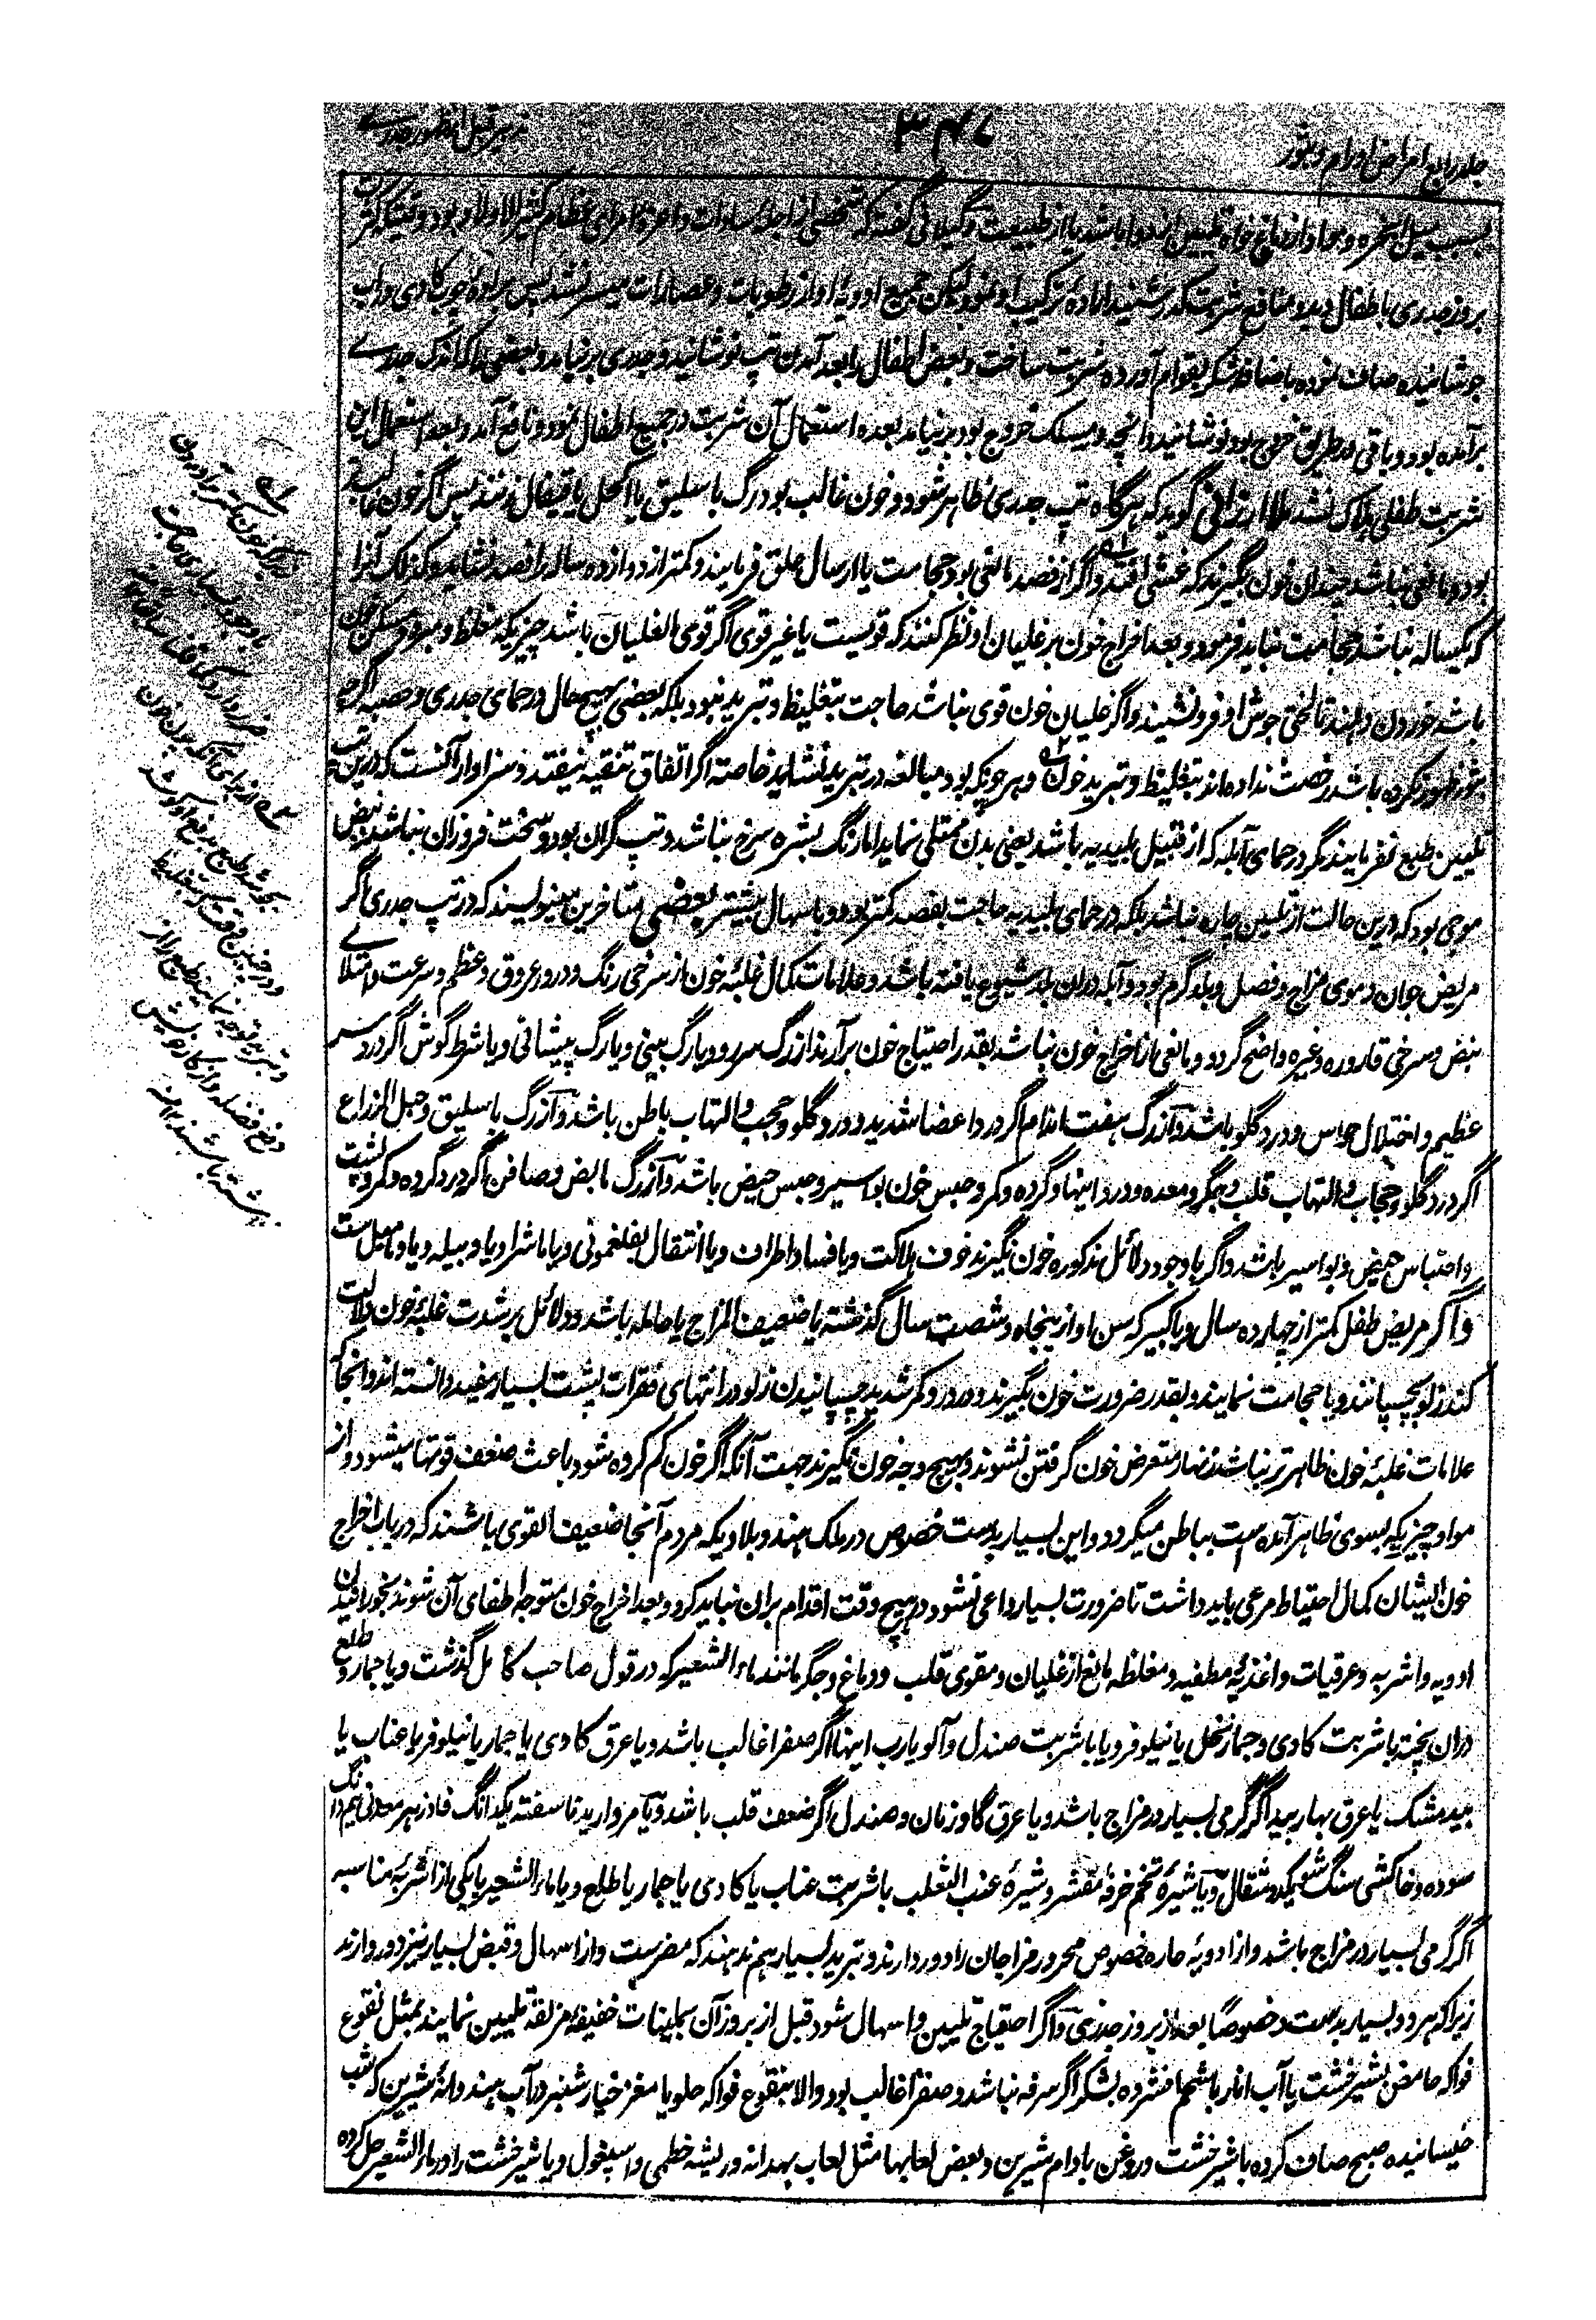 جلد رابع امراض اورام و بثور
۳۴۷
تدبیر قبل از ظهور جدری
بسبب سیل ابخره و مواد از دماغ خواه تلیین از دوا باشد یا از طبیعت و گیلانی گفته که شخصی از اجلهٔ سادات و اعزهٔ امرای عظام کثیر الاولاد بود وقتیکه کثرت
بروز جدری باطفال دید و منافع شربت کدر شنید ارادهٔ ترکیب او نمود لیکن جمیع ادویهٔ او از رطوبات و عصارات میسر نشد پس برادهٔ چوب کادی در آب
جوشانیده صاف نموده باضافهٔ شکر بقوام آورده شربت ساخت و بعض اطفال را بعد آمدن تپ نوشانید و جدری بر نیامد و بعضی را که اندک جدری
برآمده بود و باقی در طریق خروج بود نوشانید و آنچه در مسلک خروج بود بر نیامد بعده استعمال آن شربت در جمیع اطفال نمود و نافع آمد و بعد استعمال این
شربت طفلی هلاک نشد ملا ارزانی گوید که هرگاه تپ جدری ظاهر شود و خون غالب بود رگ باسلیق یا اکحل یا قیفال زنند پس اگر خون غالب
بود و مانعی نباشد چندان خون بگیرند که غشی افتد و اگر از فصد مانعی بود حجامت یا ارسال علق فرمایند و کمتر از دوازده ساله را فصد نشاید و کذلک آنرا
که یکساله نباشد حجامت نباید فرمود و بعد اخراج خون بر غلیان او نظر کنند که قویست یا غیر قوی اگر قوی الغلیان باشد چیزیکه مغلظ و مبرد و مسکن خون
باشد خوردن دهند تا لختی جوش او فرو نشیند و اگر غلیان خون قوی نباشد حاجت بتغلیظ و تبرید نبود بلکه بعضی بهیچ حال در حمای جدری و حصبه اگرچه
بثور ظهور نکرده باشد رخصت نداده اند بتغلیظ و تبرید خون و هر چونکه بود مبالغه در تبرید نشاید خاصته اگر اتفاق تنقیه نیفتد و سزاوار آنست که درین تپ
تلیین طبع نفرمایند مگر در حمای آبله که از قبیل بلیدیه باشد یعنی بدن ممتلی نماید اما رنگ بشره سرخ نباشد و تپ گران بود و سخت فروزان نباشد نبض
موجی بود که درین حالت از تلیین چاره نباشد بلکه در حمای بلیدیه حاجت بفصد کمتر بود و باسهال بیشتر بعضی متاخرین مینویسند که در تپ جدری اگر
مریض جوان دموی مزاج و فصل و بلد گرم بود و آبله دران بلد شیوع یافته باشد و علامات کمال غلبهٔ خون از سرخی رنگ و درور عروق و عظم و سرعت و امتلای
نبض و سرخی قاروره و غیره واضح گردد و مانعی از اخراج خون نباشد بقدر احتیاج خون برآرند از رگ سررو و یا رگ بینی و یا رگ پیشانی و یا شرط گوش اگر درد سر
عظیم و اختلال حواس و درد گلو باشد و از رگ هفت اندام اگر درد اعضا شدید و درد گلو و حجب و التهاب باطن باشد و از رگ باسلیق و حبل الذراع
اگر درد گلو و حجاب و التهاب قلب و جگر و معده و درد اینها و گرده و کمر و حبس خون بواسیر و حبس حیض باشد و از رگ مابض و صافن اگر درد گرده و کمر و پشت
و احتباس حیض و بواسیر باشد و اگر باوجود دلائل مذکوره خون نگیرند خوف هلاکت و یا فساد اطراف و یا انتقال بفلغمونی و یا ماشرا و یا دبیله و یا دمامیل است
و اگر مریض طفل کمتر از چهارده سال و یا کبیر که سن او از پنجاه و شصت سال گذشته یا ضعیف المزاج یا حامله باشد و دلائل بر شدت غلبهٔ خون دلالت
کنند زلو بچسپانند و یا حجامت نمایند و بقدر ضرورت خون بگیرند و در درد کمر شدید چسپانیدن زلو در انتهای فقرات پشت بسیار مفید دانسته اند و آنجا که
علامات غلبهٔ خون ظاهر تر نباشد زنهار متعرض خون گرفتن نشوند و بهیچ وجه خون نگیرند جهت آنکه اگر خون کم کرده شود باعث ضعف قوتها میشود و از
مواد چیزیکه بسوی ظاهر آمده است بباطن میگردد و این بسیار بدست خصوص در ملک هند و بلادیکه مردم آنجا ضعیف القوی باشند که در باب اخراج
خون ایشان کمال احتیاط مرعی باید داشت تا ضرورت بسیار داعی نشود در هیچ وقت اقدام بران نباید کرد و بعد اخراج خون متوجه اطفای آن شوند بخورانیدن
ادویه و اشربه و عرقیات و اغذیهٔ مطفیه و مغلظه مانع از غلیان و مقوی قلب و دماغ و جگر مانند ماء الشعیر که در قول صاحب کامل گذشت و یا جمار و طلع
دران پخته با شربت کادی و جمار نخل یا نیلوفر و یا با شربت صندل و آلو یا رب اینها اگر صفرا غالب باشد و یا عرق کادی یا جمار یا نیلوفر یا عناب یا
بیدمشک یا عرق بهار بید اگر گرمی بسیار در مزاج باشد و یا عرق گاوزبان و صندل اگر ضعف قلب باشد و یا مروارید ناسفته یکدانگ فادزهر معدنی نیم دانگ
سوده و خاکشی سنگ شو یکدو مثقال و یا شیرهٔ تخم خرفهٔ مقشر و شیرهٔ عنب الثعلب با شربت عناب یا کادی یا جمار یا طلع و یا ماء الشعیر یا یکی از اشربهٔ مناسبه
اگر گرمی بسیار در مزاج باشد و از ادویهٔ حاره خصوص محرور مزاجان را دور دارند و تبرید بسیار هم ندهند که مضرست و از اسهال و قبض بسیار نیز دور دارند
زیرا که هر دو بسیار بدست خصوصا بعد از بروز جدری و اگر احتیاج تلیین و اسهال شود قبل از بروز آن بملینات خفیفهٔ مزلقه تلیین نمایند بمثل نقوع
فواکه حامض بشیرخشت یا آب انار با شحم افشرده بشکر اگر سرفه نباشد و صفرا غالب بود والا بنقوع فواکه حلو یا مغز خیارشنبر در آب هندوانهٔ شیرین که شب
خیسانیده صبح صاف کرده با شیرخشت و روغن بادام شیرین و بعض لعابها مثل لعاب بهدانه و ریشهٔ خطمی و اسپغول و یا شیرخشت را در ماء الشعیر حل کرده